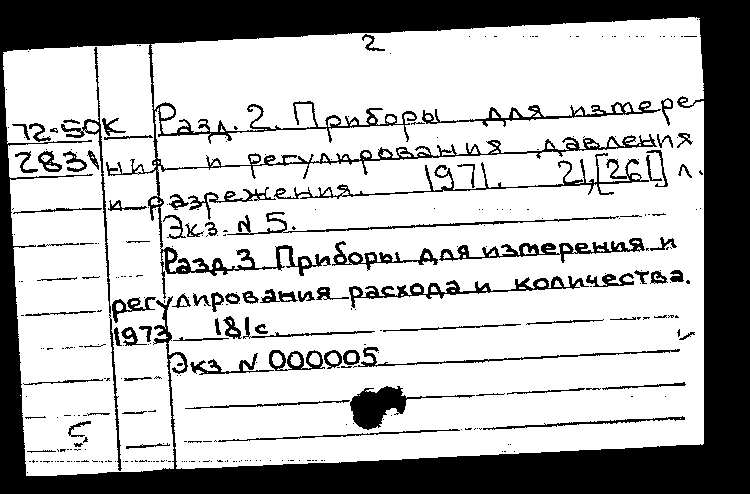 2
72-50к Разд. 2. Приборы для измере-
2831 ния и регулирования давления
и разрежения. 1971. 21,[261] л.
Экз. N 5.
Разд. 3 Приборы для измерения и
регулирования расхода и количества.
1973. 181с.
Экз N 000005.
5